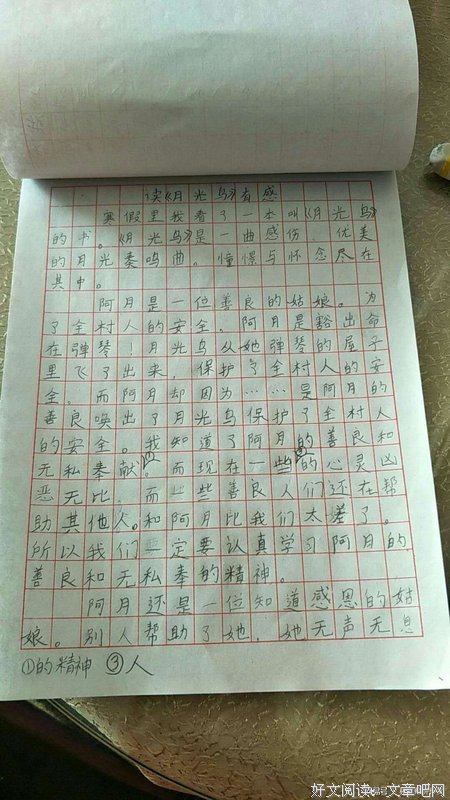 读《月光鸟》有感
寒假里我看了一本叫《月光鸟》
的书。《月光鸟》是一曲感伤、优美
的月光奏鸣曲。憧憬与怀念尽在
其中。
阿月是一位善良的姑娘。为
了全村人的安全,阿月是豁出命
在弹琴!月光鸟从她弹琴的屋子
里飞了出来,保护了全村人的安
全。而阿月却因为……是阿月的
善良唤出了月光鸟保护了全村人
的安全。我知道了阿月的善良和
无私奉献①。而现在一些③的心灵凶
恶无比,而一些善良人们还在帮
助其他人。和阿月比我们太差了。
所以我们一定要认真学习阿月的
善良和无私奉的精神。
阿月还是一位知道感恩的姑
娘。别人帮助了她,她无声无息
①的精神 ③人
好文阅读。文章吧网